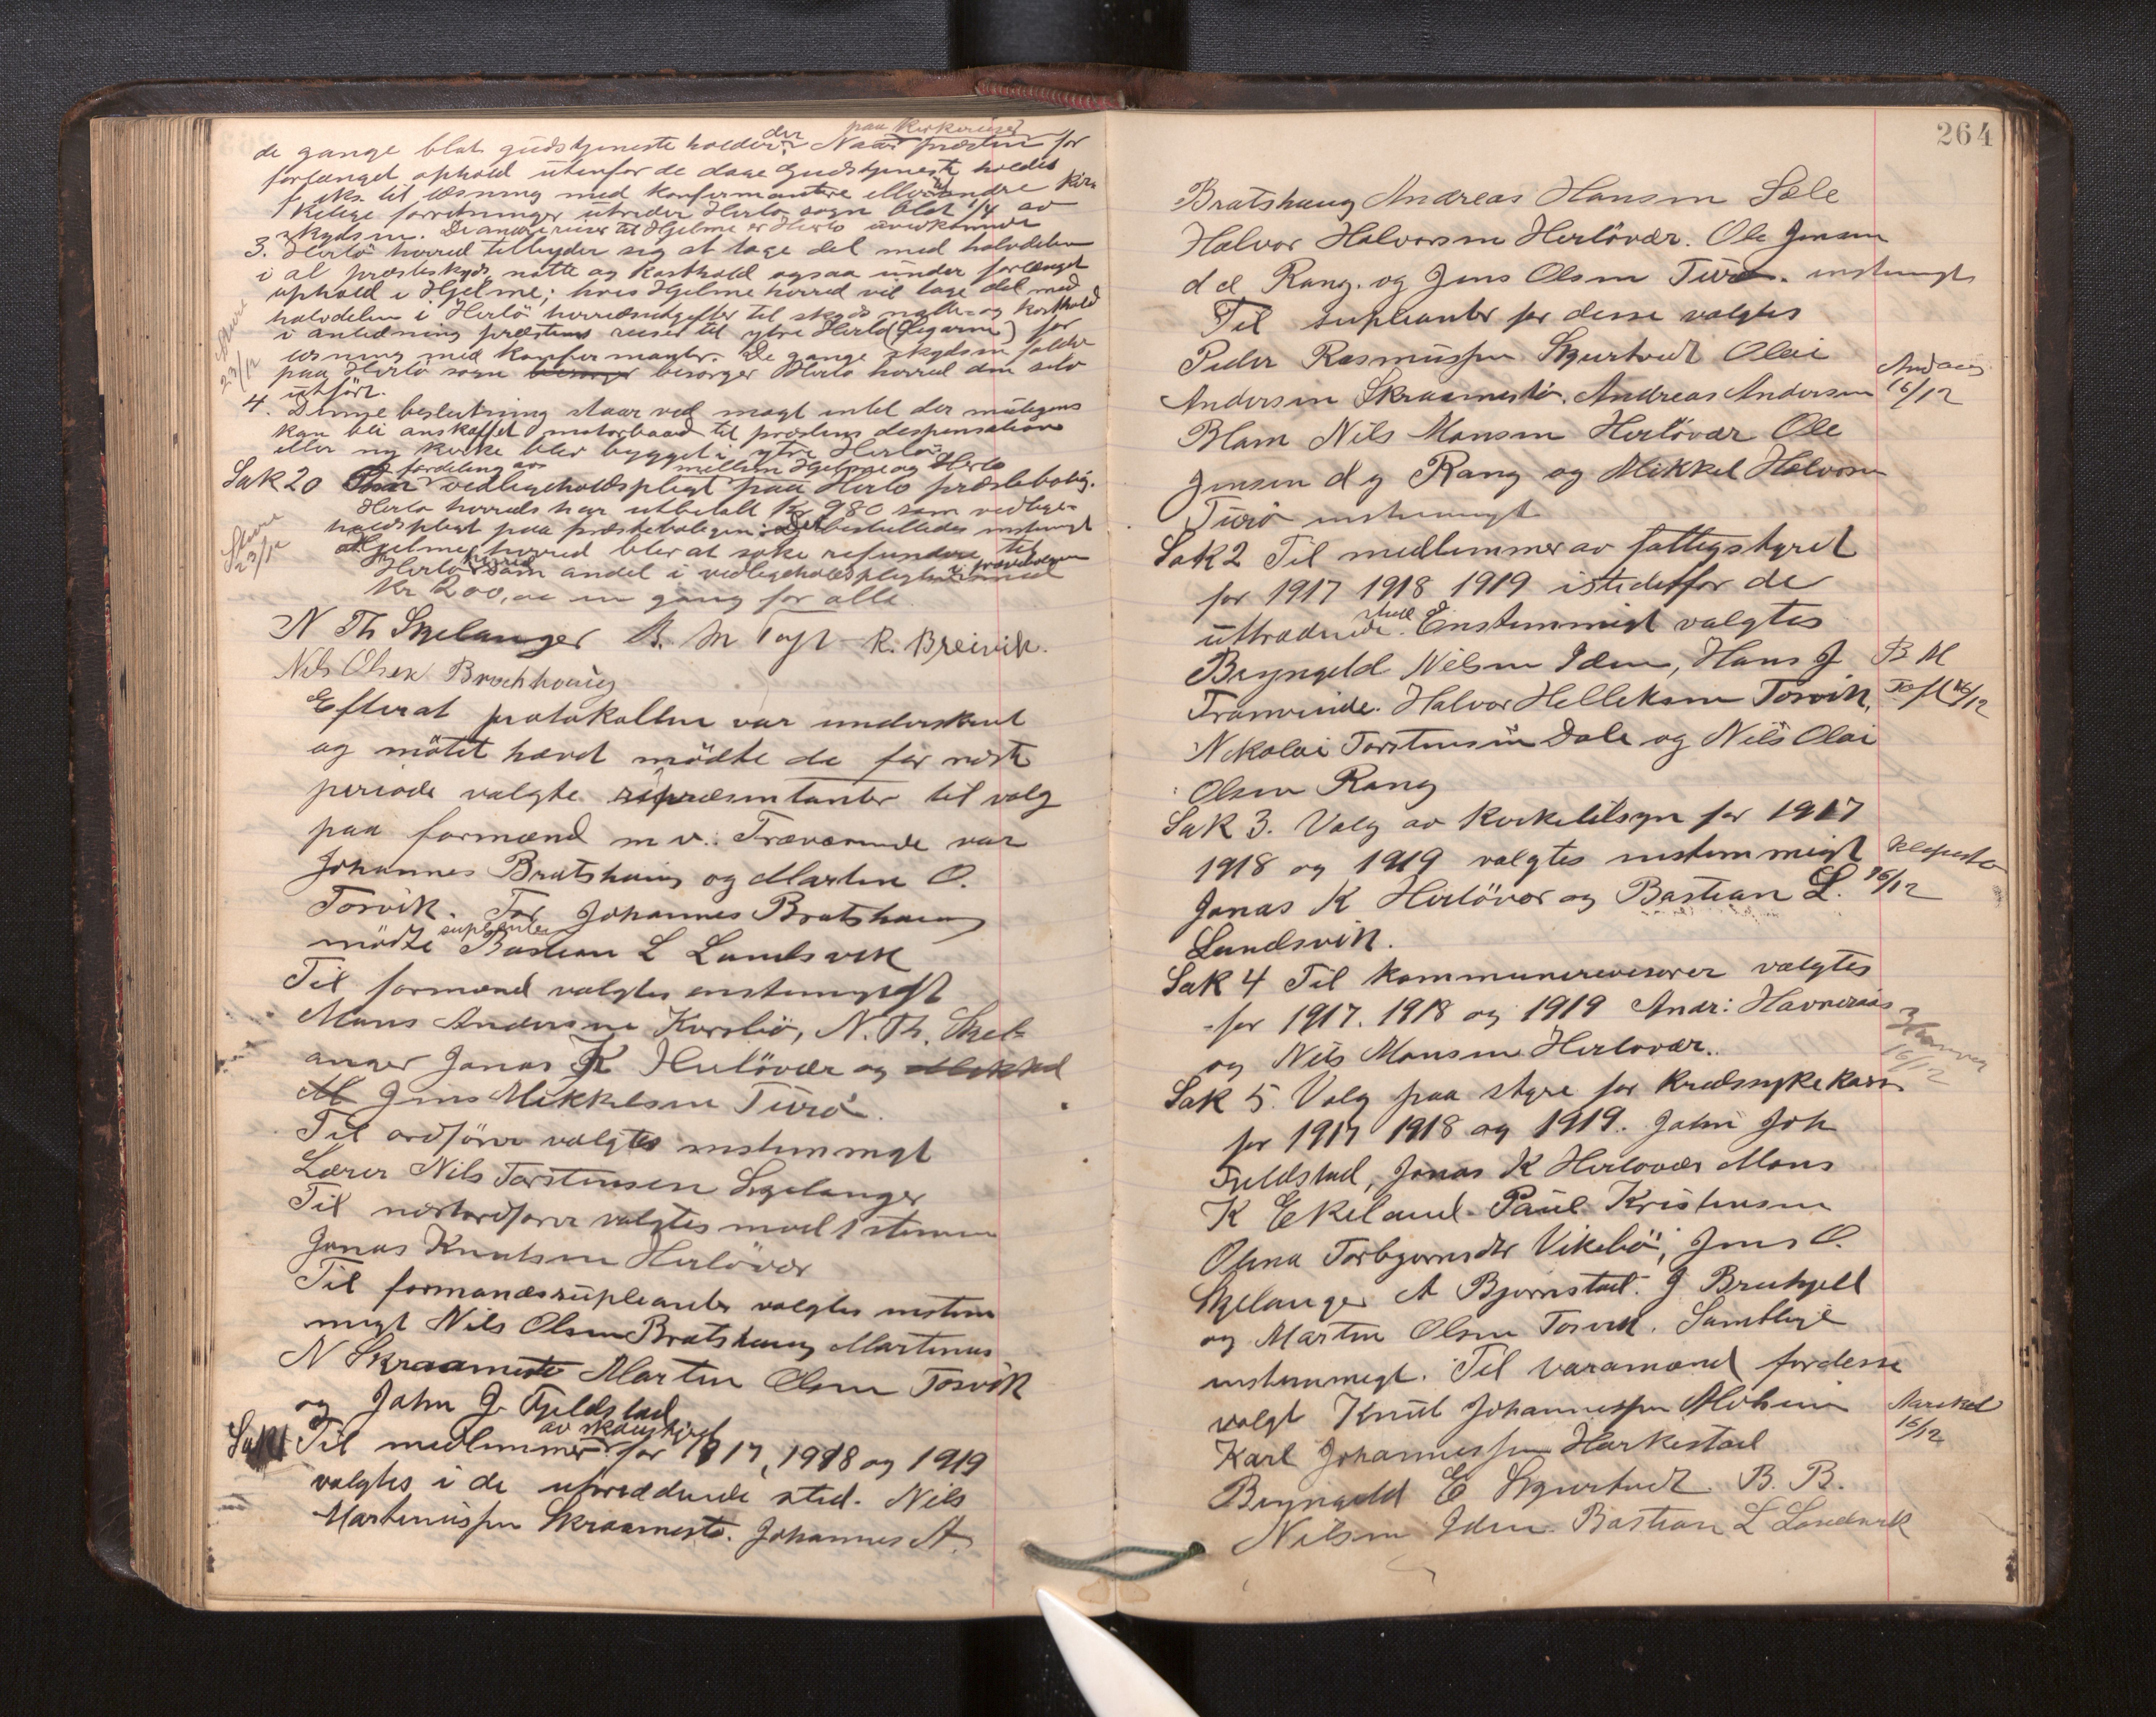 de gange blot gudstjeneste holdes der. Naar præsten paa kirkereiser for
forlænget ophold utenfor de dage Gudstjeneste holdes
f eks. til læsning med konfirmantere eller andre kir-
kelige forretninger utreder Herlø sogn blot 1/4 av
skydsen. De andre reiser til Hjelme er Herlø uvedkommende
3. Herlö herred tilbyder sig at tage del med halvdelen
i al præsteskyds, natte og kosthold ogsaa under forlænget
ophold i Hjelme; hvis Hjelme herred vil tage del med
halvdelen i Herlö herredsutgifter til skyds natte- og kosthold
i anledning præstens reiser til ytre Herlö (Øygarden) for
læsning med konfirmanter. De gange skydsen falder
paa Herlö sogn besorger Herlö herred den selv
utfört.
4. Denne beslutning staar ved magt intil der muligens
kan bli anskaffet motorbaad til præstens despensation
eller ny kirke blir bygget i ytre Herlö.
Sak 20 fordeling av vedlikeholdspligt paa Herlo præstebolig. mellem Hjelme og Herlo
Herlo herred har utbetalt Kr 980 som vedlike-
holdspligt paa præsteboligen: Det besluttedes enstemmigt
at Hjelme herred blir at søke refundere til
Herlo herred som andel i vedlikeholdspligten
Kr 200,00 en gang for alle.
Sture
23/12
Sture
23/12
N Th Skjelanger A. M Toft R. Breivik.
Nils Olsen Brathoug
Efterat protokollen var underskrevet
og mötet hævet mödte de for næste
periode valgte repræsentanter til valg
paa formænd m. v. Fraværende var
Johannes Bratshaug og Martin O.
Torsvik. For Johannes Bratshaug
mödte suplianten Bastian L Landsvik
Til formænd valgtes enstemmigt
Mons Andersen Korsbö, N. Th. Skjel-
anger Jonas K Herlövær og
Jens Mikkelsen Turö.
Til ordförer valgtes enstemmigt
Lærer Nils Torstensen Skjelanger
Til næstordförer valgtes med 1 stemme
Jonas Knutsen Herlövær
Til formandssupleanter valgtes enstem
migt Nils Olsen Bratshaug Martinus
N Skraamestø Martin Olsen Torsvik
og John J. Fjeldstad
Sak 1 Til medlemmer av skolestyret for 1917, 1918 og 1919
valgtes i de uttrædende sted. Nils
Martinussen Skraamestø. Johannes A.
264
Bratshaug Andreas Hansen Sæle
Halvor Halvorsen Herlövær. Ole Jensen
d e Rang. og Jens Olsen Turö. enstemmigt
Til supleanter for disse valgtes
Peder Rasmussen Skjurtvedt Olai
Andersen Skraamestö. Andreas Andersen
Blom Nils Monsen Herlövær Ole
Jensen d y Rang og Mikkel Halvorsen
Turö enstemmigt
16/12
Sak 2 Til medlemmer av fattigstyret
for 1917 1918 1919 istedetfor de
uttrædende. Enstemmigt valgtes
Brynjeld Nilsen Iden, Hans J
Tranvinde. Halvor Helleksen Torsvik,
Nikolai Torstensen Dale og Nils Olai
Olsen Rang
B M
Toft 16/12
Sak 3. Valg av kirketilsyn for 1917
1918 og 1919 valgtes enstemmigt
Jonas K Herlövær og Bastian L.
Landsvik.
16/12
Sak 4 Til kommunerevisorer valgtes
for 1917. 1918 og 1919 Andr: Havneraas
og Nils Monsen Herlovær.
16/12
Sak 5. Valg paa styre for kredssykekassen
for 1917 1918 og 1919. John Joh
Fjeldstad, Jonas K Herlovær Mons
K Ekeland Paul Kristensen
Olina Torbjornsdtr Vikebö, Jens O.
Skjelanger A Bjornstad. J Brukjell
og Martin Olsen Torsvik. Samtlige
enstemmigt. Til varamænd for disse
valgt Knut Johannessen
Karl Johannessen Harkestad
Brynjeld E Skjurtvedt B. B.
Nilsen Iden Bastian L Landsvik
16/12